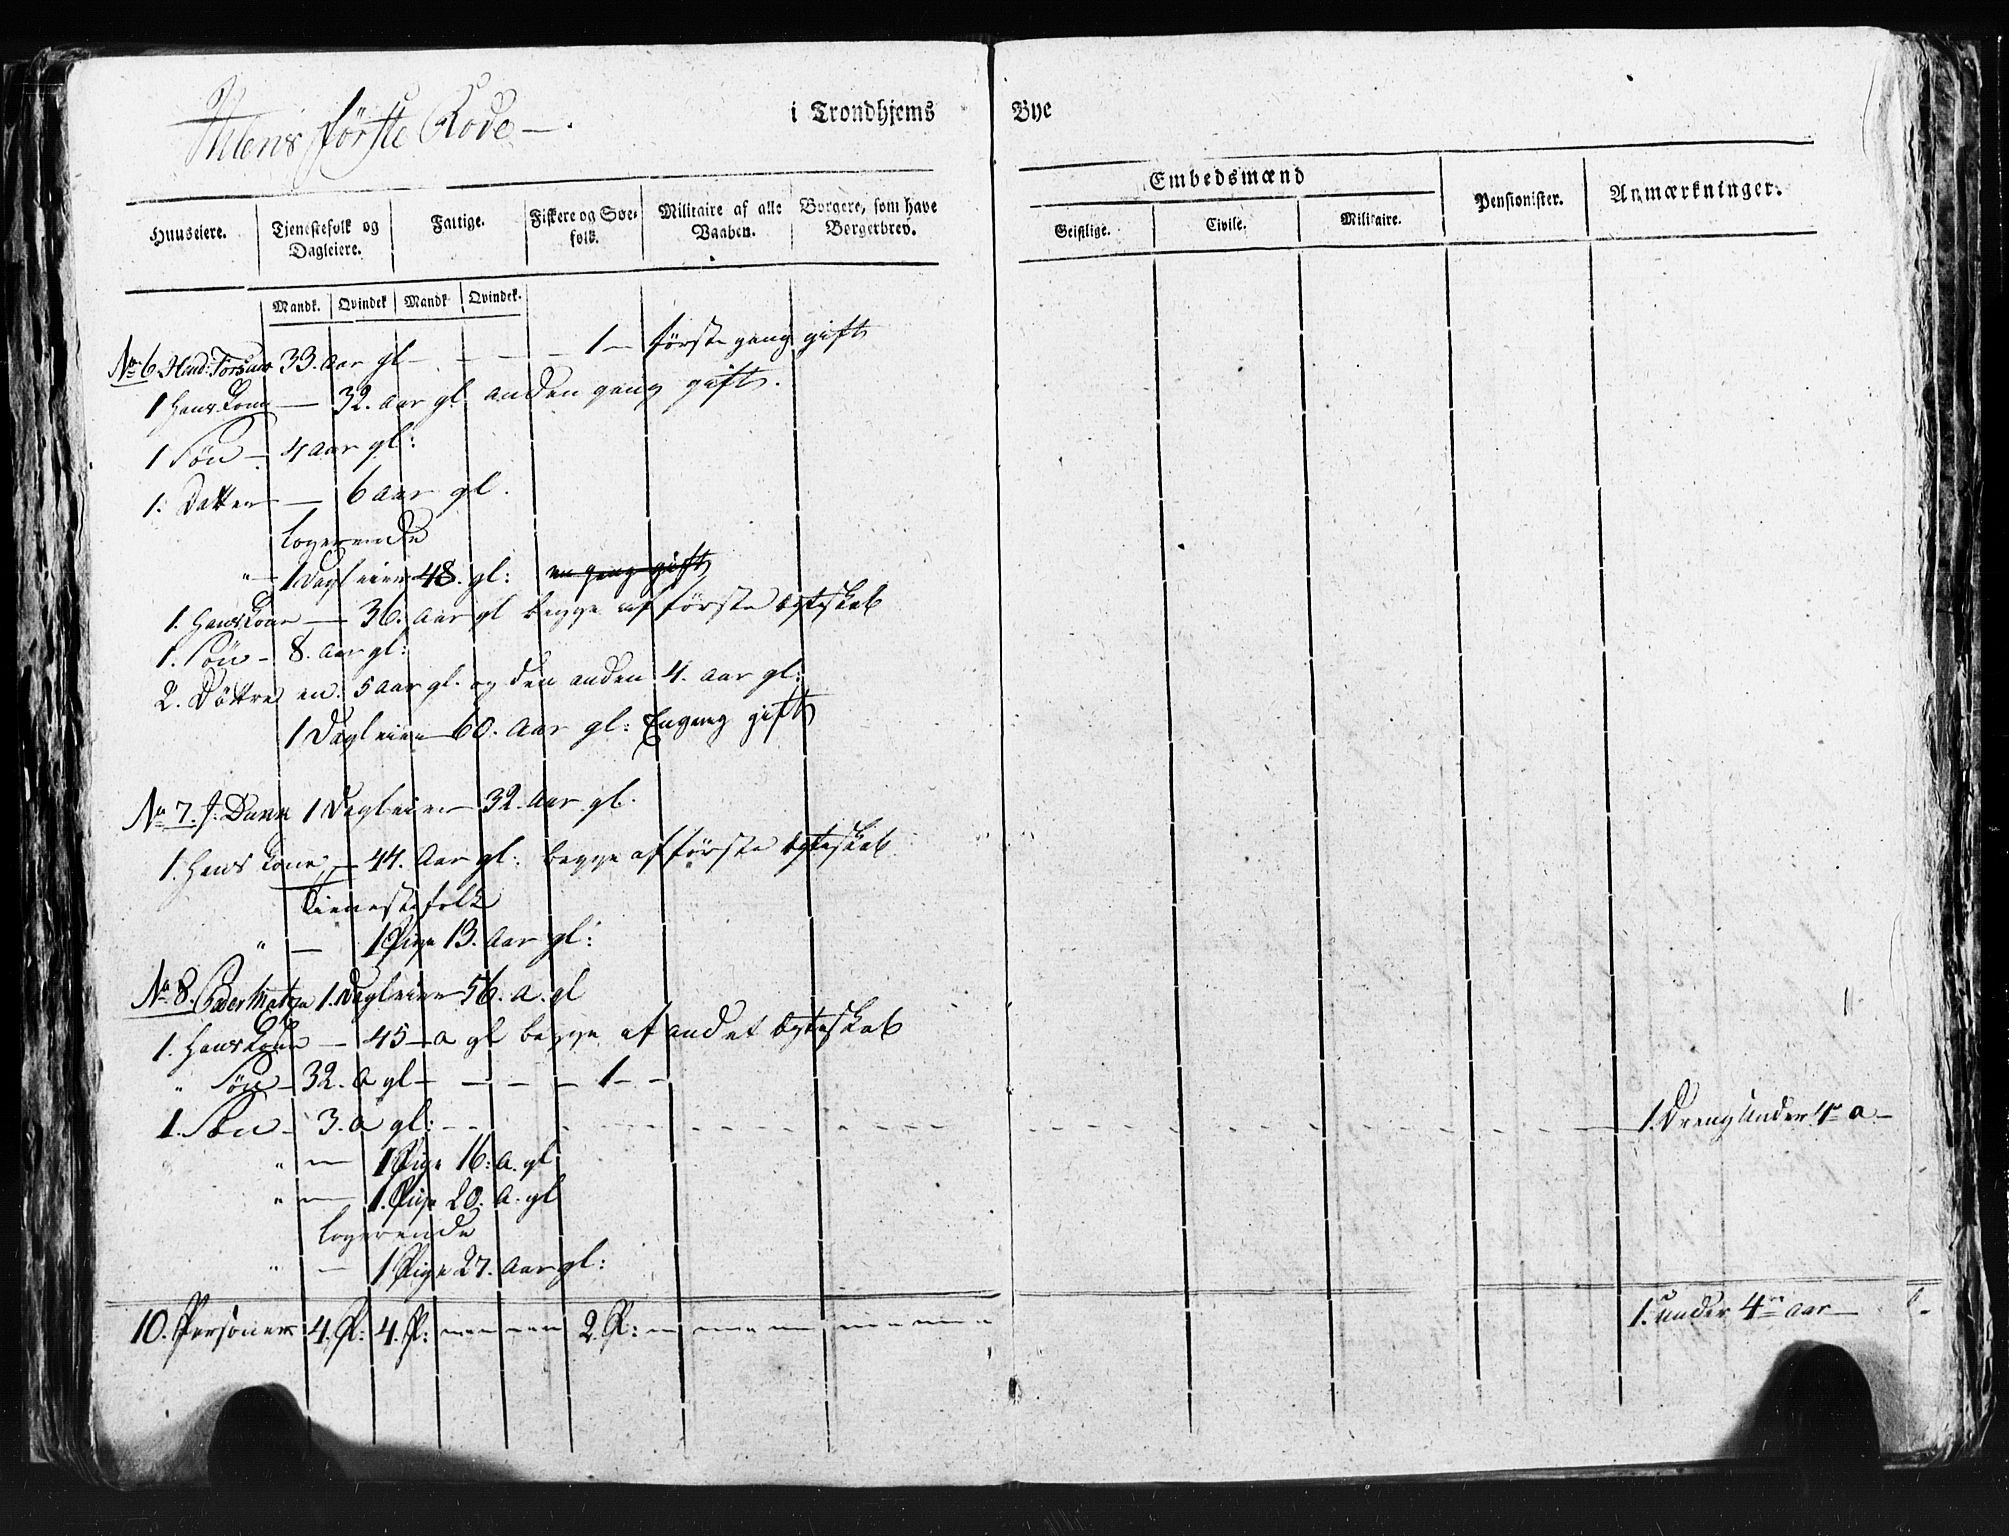 Ihlens første Rode —. i Trondhjems Bye
Huuseiere. Tjenestefolk og Dagleiere. Fattige. Fiskere og Søefolk. Militaire af alle Vaaben. Borgere, som have Borgerbrev. Embedsmænd Pensionister. Anmærkninger.
Geistlige. Civile. Militaire.
Mandk. Qvindek Mandk Qvindek.
No 6. Hend: 33. aar gl — — — — 1 — første gang gift
1 Hans Kone — 32. aar gl. anden gang gift.
1 Søn — 4 aar gl:
1. Datter — 6 aar gl.
Logerende
" — 1 Dagleier 48. gl: en gang gift
1. Hans Kone — 36. aar gl begge af første Egteskab
1. Søn — 8. aar gl:
2. Døttre en. 5 aar gl. og den anden 4. aar gl:
1 Dagleier 60. aar gl: Engang gift
No 7. J. 1 Dagleier 32. aar gl.
1. Hans Kone — 44. aar gl. begge af første Egteskab
Tienestefolk
" — 1 Pige 13. aar gl:
No 8. Peder 1. Dagleier 56. a. gl
1. Hans Kone — 45 — a gl begge af andet Egteskab
" Søn — 32. a gl — — — — 1 — —
1. Søn — 3. a gl: — — 1. Dreng under 4re a —
" — 1 Pige 16. a. gl
" — 1. Pige 20. a. gl
Logerende
" — 1 Pige 27. aar gl:
10. Personer 4. P: 4. P: — — 2. P: — — — 1. under 4re aar —